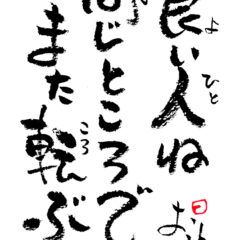 良い人ね
よ
ひと
同じところで
また転ぶ
ころ